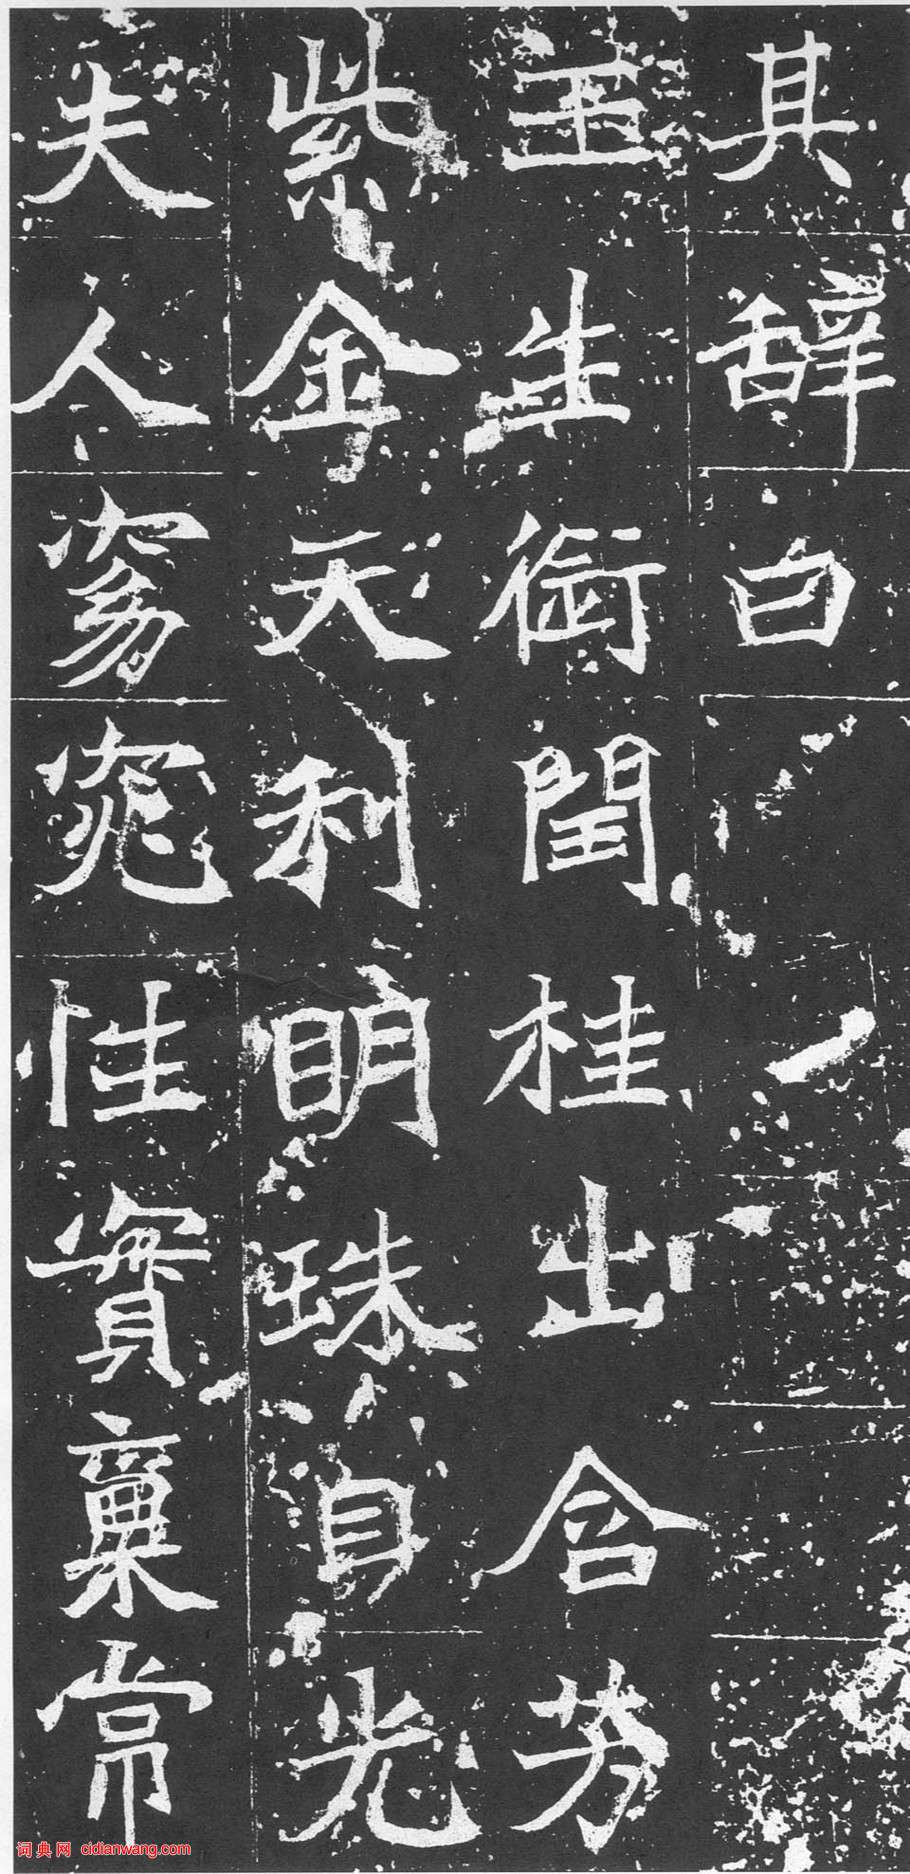 其辭曰
玉生銜閏桂出含芳
紫金天利明珠自光
夫人窈窕性實稟常
词典网 cidianwang.com